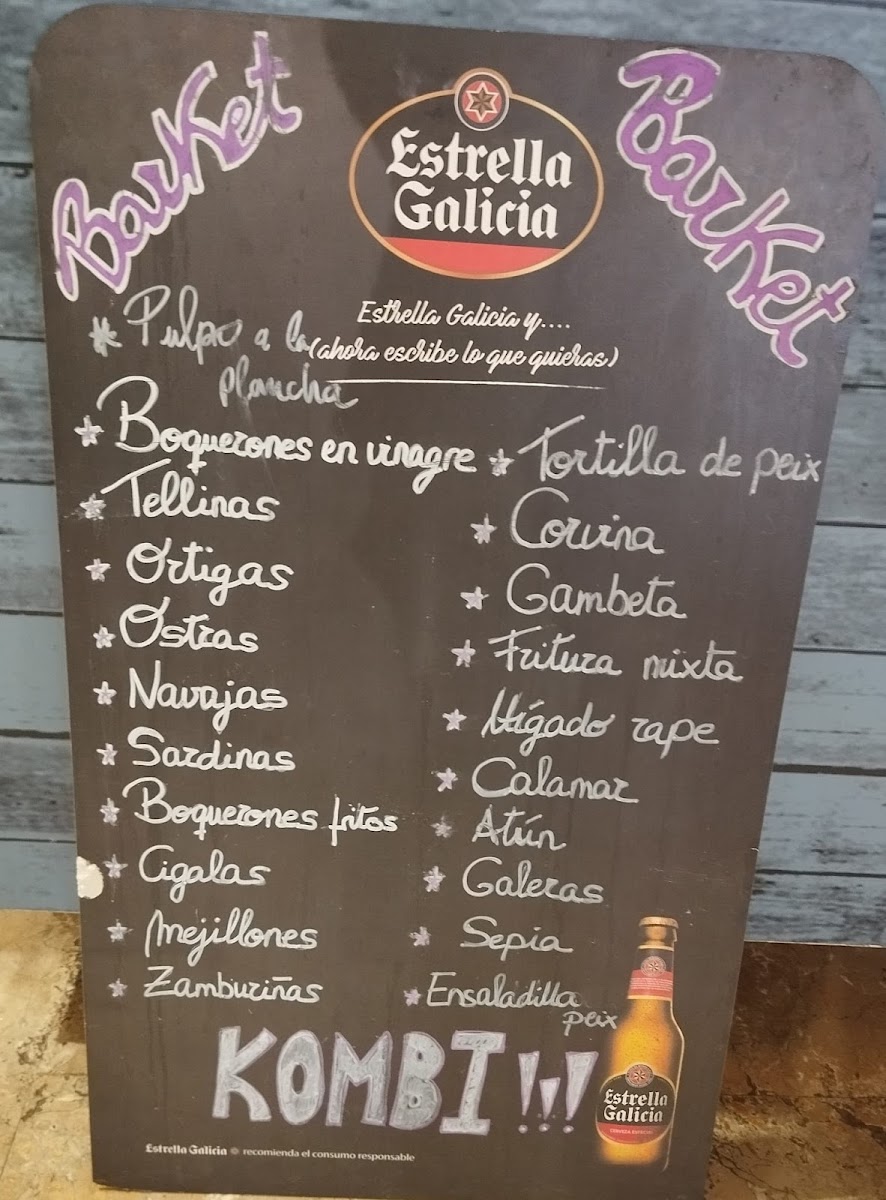 Barket
Barket
Estrella
Galicia
Estrella Galicia y....
(ahora escribe lo que quieras)
* Pulpo a la
plancha
* Boquerones en vinagre
* Tellinas
* Ortigas
* Ostras
* Navajas
* Sardinas
* Boquerones fritos
* Cigalas
* Mejillones
* Zamburiñas
* Tortilla de peix
* Corvina
* Gambeta
* Fritura mixta
* Hígado rape
* Calamar
* Atún
* Galeras
* Sepia
* Ensaladilla
peix
KOMBI!!!
Estrella
Galicia
CERVEZA ESPECIAL
Estrella Galicia recomienda el consumo responsable